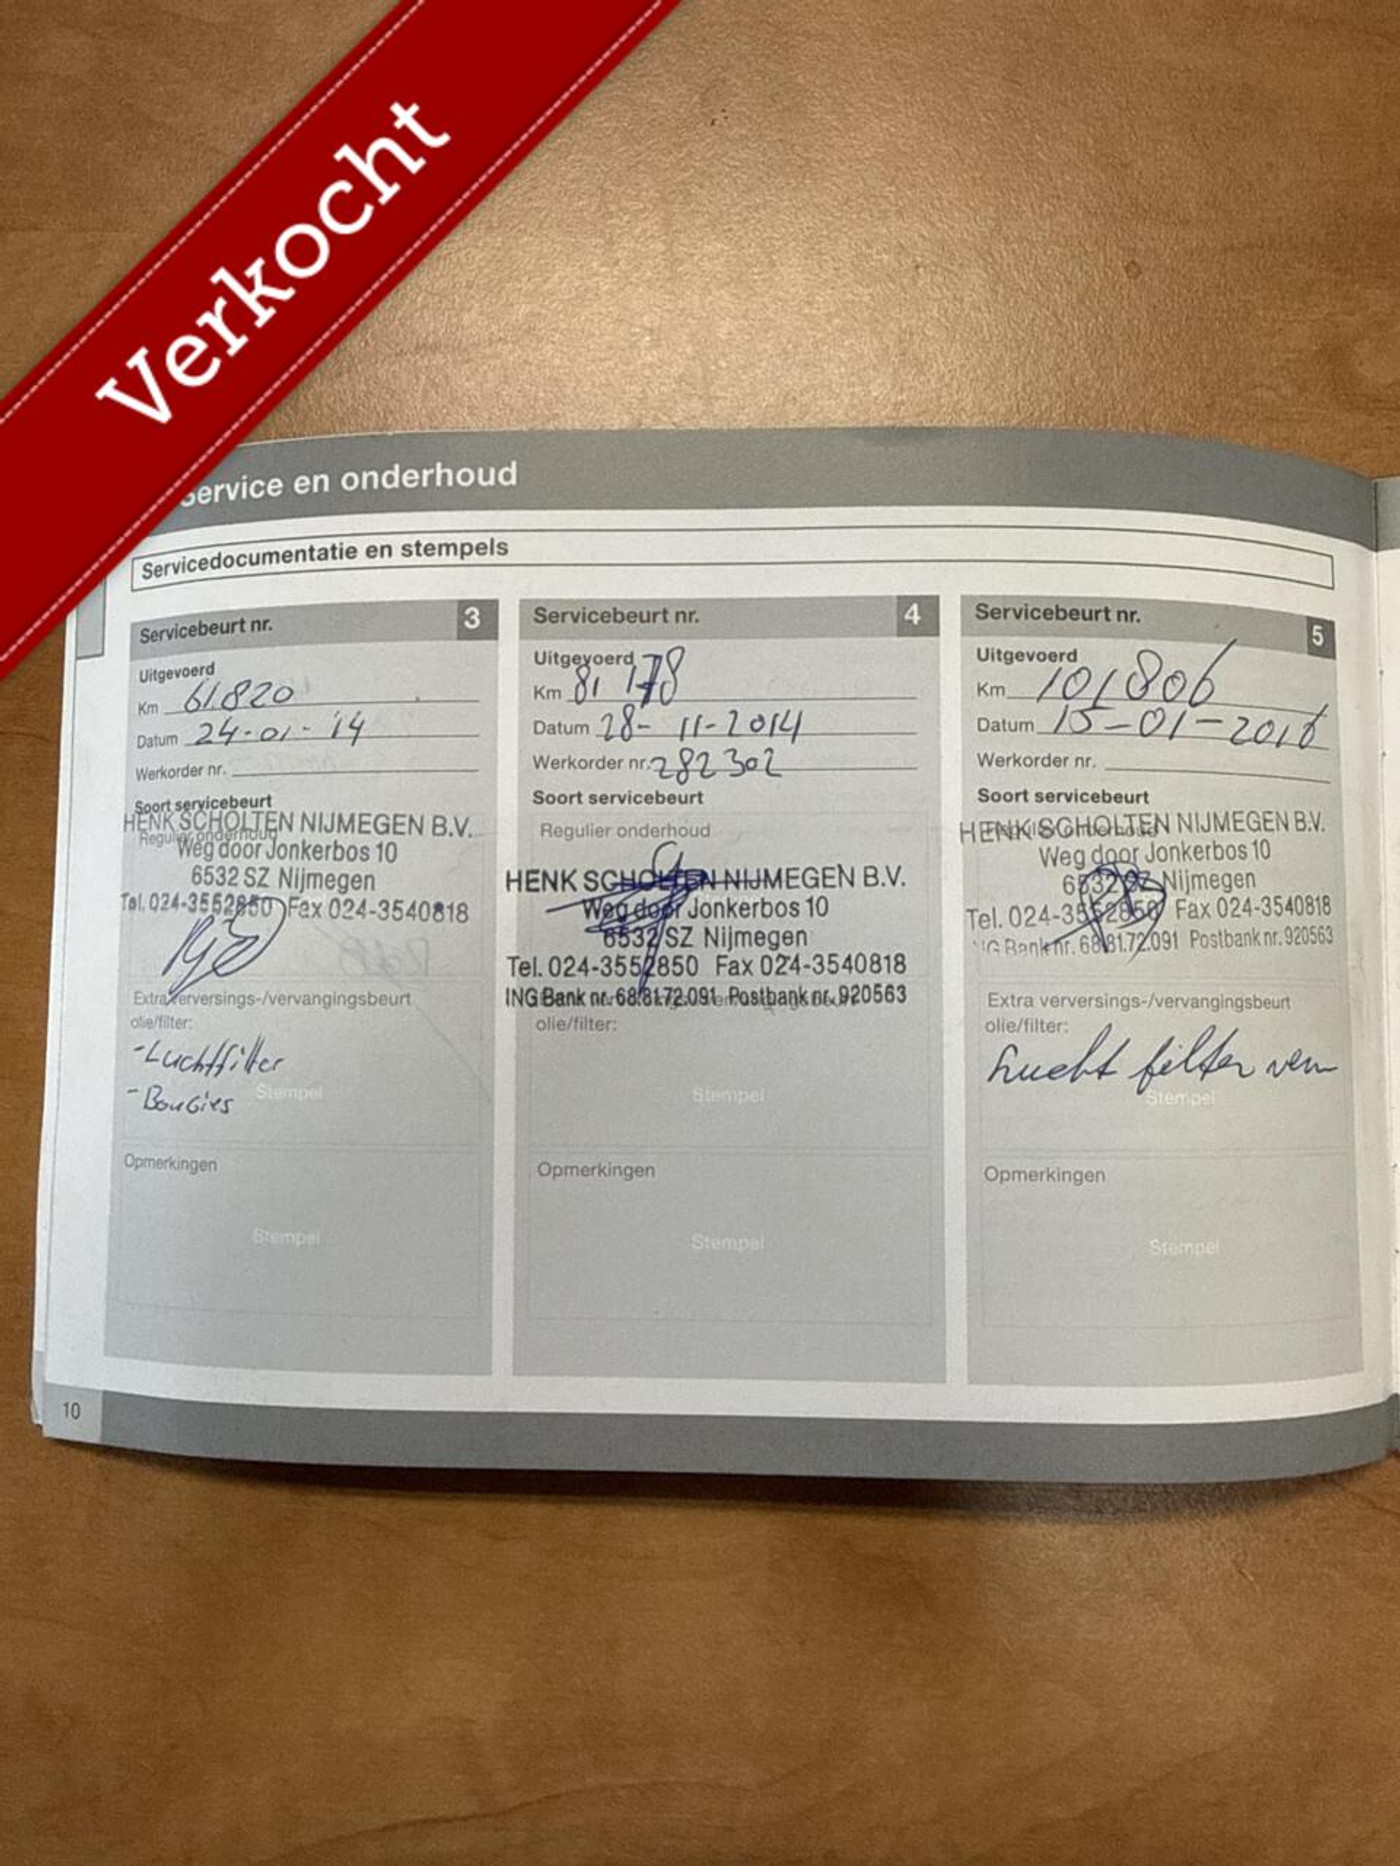 Verkocht
Service en onderhoud
Servicedocumentatie en stempels
Servicebeurt nr. 3
Uitgevoerd
Km 61820
Datum 24-01-'14
Werkorder nr.
Soort servicebeurt
Regulier onderhoud
HENK SCHOLTEN NIJMEGEN B.V.
Weg door Jonkerbos 10
6532 SZ Nijmegen
Tel. 024-3552850 Fax 024-3540818
Extra verversings-/vervangingsbeurt
olie/filter:
-Luchtfilter
-Bougies
Stempel
Opmerkingen
Stempel
Servicebeurt nr. 4
Uitgevoerd
Km 81178
Datum 28-11-2014
Werkorder nr. 282302
Soort servicebeurt
Regulier onderhoud
HENK SCHOLTEN NIJMEGEN B.V.
Weg door Jonkerbos 10
6532 SZ Nijmegen
Tel. 024-3552850 Fax 024-3540818
ING Bank nr. 68.81.72.091 Postbank nr. 920563
olie/filter:
Stempel
Opmerkingen
Stempel
Servicebeurt nr. 5
Uitgevoerd
Km 101806
Datum 15-01-2016
Werkorder nr.
Soort servicebeurt
HENK SCHOLTEN NIJMEGEN B.V.
Weg door Jonkerbos 10
6532 SZ Nijmegen
Tel. 024-3552850 Fax 024-3540818
ING Bank nr. 68.81.72.091 Postbank nr. 920563
Extra verversings-/vervangingsbeurt
olie/filter:
Lucht filter verv
Stempel
Opmerkingen
Stempel
10